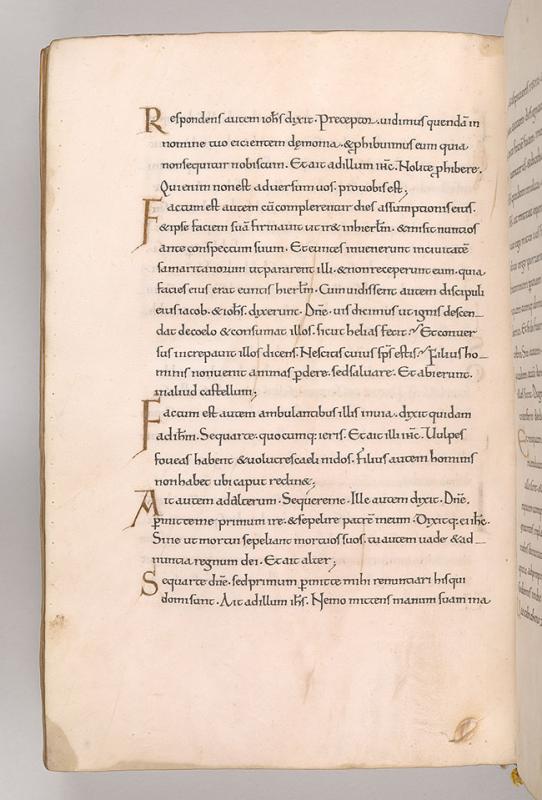 Respondens autem ioh̅s dixit. Preceptor. uidimus quendā in
nomine tuo eicientem dęmonia. & ꝓhibuimus eum quia
non sequitur nobiscum. Et ait ad illum ih̅c. Nolite ꝓhibere.
Qui enim non est aduersum uos. pro uobis est;
Factum est autem cū complerentur dies assumptionis eius.
& ipse faciem suā firmauit ut ir& in hierl̅m. & misit nuntios
ante conspectum suum. Et euntes intrauerunt in ciuitatē
samaritanorum ut pararent illi. & non receperunt eum. quia
facies eius erat euntis hierl̅m. Cum uidissent autem discipuli
eius iacob. & ioh̅s. dixerunt. Dn̅e. uis dicimus ut ignis descen-
dat de coelo & consumat illos. sicut helias fecit. Et conuer
sus increpauit illos dicens. Nescitis cuius sp̅s estis. filius ho-
minis non uenit animas ꝑdere. sed saluare. Et abierunt.
in aliud castellum;
Factum est autem ambulantibus illis in uia. dixit quidam
ad ih̅m. Sequar te. quocumq; ieris. Et ait illi ih̅c. Uulpes
foueas habent & uolucres caeli nidos. filius autem hominis
non habet ubi caput reclin&;
Ait autem ad alterum. Sequere me. Ille autem dixit. Dn̅e.
ꝑmitte me primum ire. & sepelire patrē meum. Dixitq; ei ih̅c.
Sine ut mortui sepeliant mortuos suos. tu autem uade & ad-
nuntia regnum dei. Et ait alter;
Sequar te dn̅e. sed primum ꝑmitte mihi renuntiari his qui
domi sunt. Ait ad illum ih̅s. Nemo mittens manum suam in a